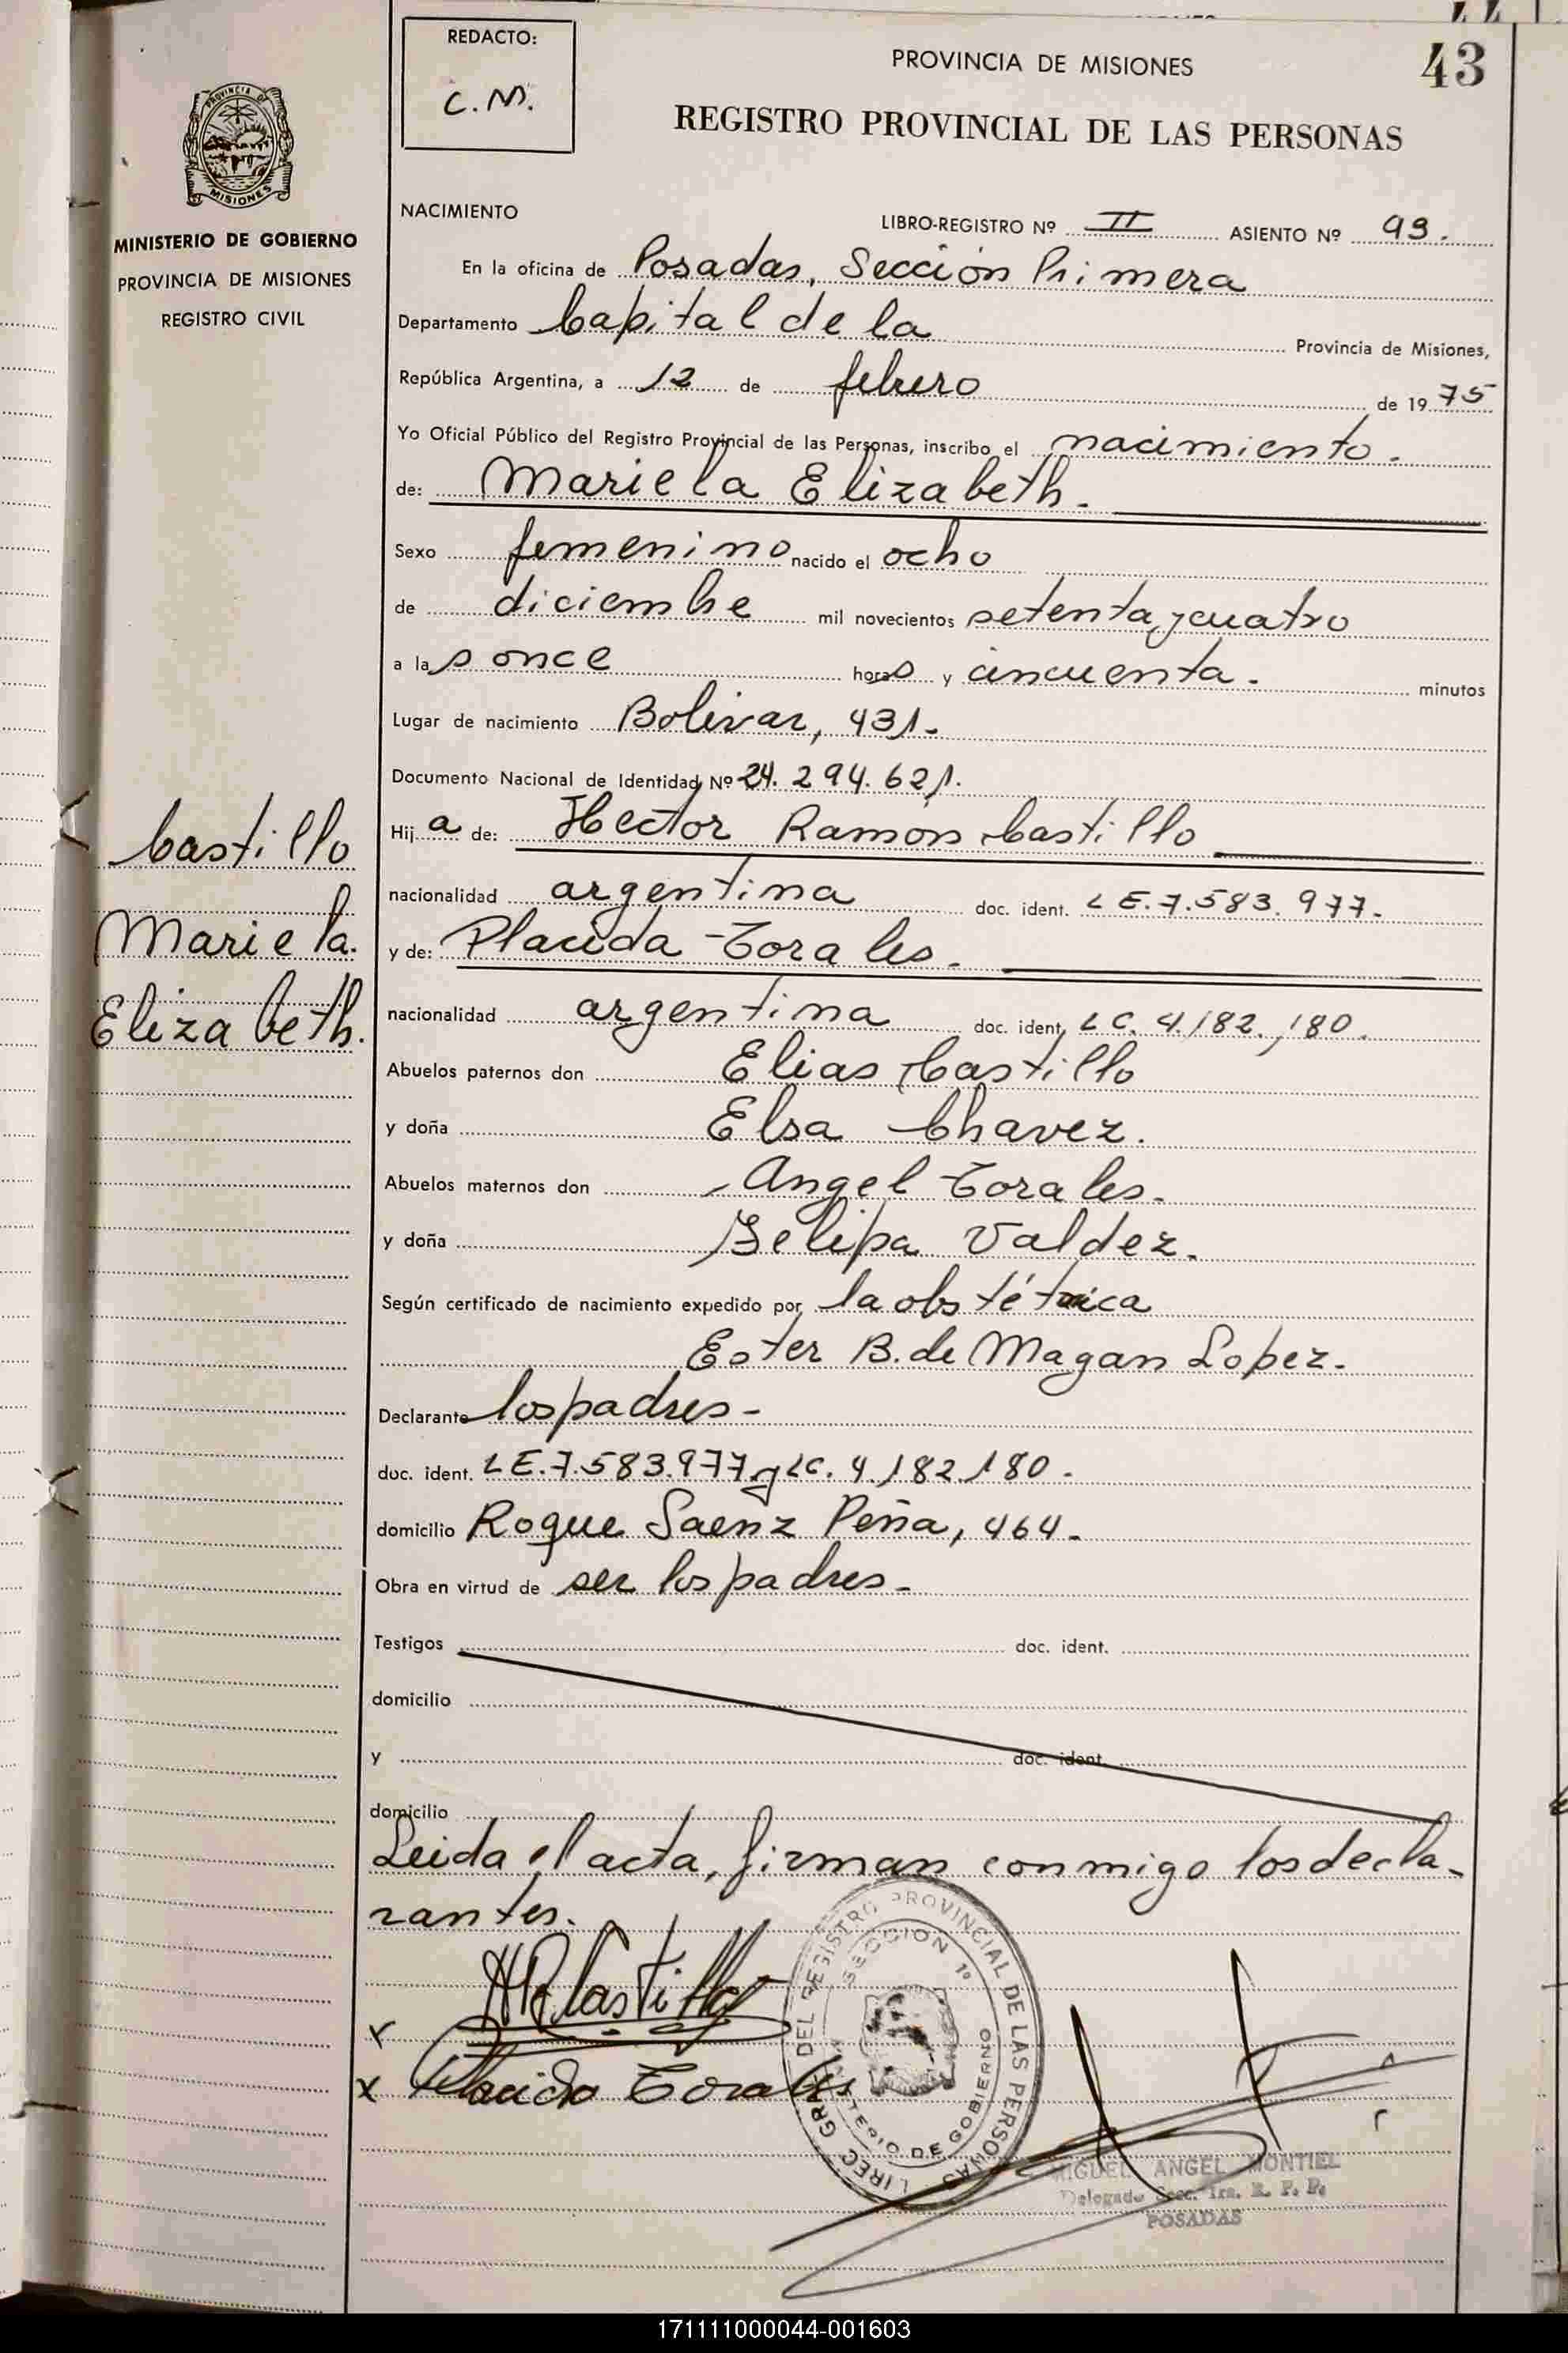 REDACTO:
C.M.
43
PROVINCIA DE MISIONES
REGISTRO PROVINCIAL DE LAS PERSONAS
PROVINCIA DE
MISIONES
MINISTERIO DE GOBIERNO
PROVINCIA DE MISIONES
REGISTRO CIVIL
NACIMIENTO
LIBRO-REGISTRO Nº II ASIENTO Nº 93.
En la oficina de Posadas, Sección Primera
Departamento Capital de la Provincia de Misiones,
República Argentina, a 12 de febrero de 1975
Yo Oficial Público del Registro Provincial de las Personas, inscribo el nacimiento.
de: Mariela Elizabeth.
Sexo femenino nacido el ocho
de diciembre mil novecientos setenta y cuatro
a las once horas y cincuenta. minutos
Lugar de nacimiento Bolivar, 431.
Documento Nacional de Identidad Nº 24.294.621.
Hija de: Hector Ramón Castillo
nacionalidad argentina doc. ident. LE.7.583.977.
y de: Placida Torales.
nacionalidad argentina doc. ident. LC. 4.182.180.
Abuelos paternos don Elias Castillo
y doña Elsa Chavez.
Abuelos maternos don Angel Torales.
y doña Felipa Valdez.
Según certificado de nacimiento expedido por la obstétrica
Ester B. de Magan Lopez.
Declarante los padres-
doc. ident. LE.7.583.977 y LC. 4.182.180.
domicilio Roque Saenz Peña, 464.
Obra en virtud de ser los padres-
Testigos doc. ident.
domicilio
y doc. ident.
domicilio
Leida el acta, firman conmigo los decla-
rantes.
Castillo
Mariela
Elizabeth.
HRCastillo
x
x Placida Torales
DIREC. GRAL. DEL REGISTRO PROVINCIAL DE LAS PERSONAS
SECCION 1º
MINISTERIO DE GOBIERNO
MIGUEL ANGEL MONTIEL
Delegado Secc. 1ra. R. P. P.
POSADAS
171111000044-001603